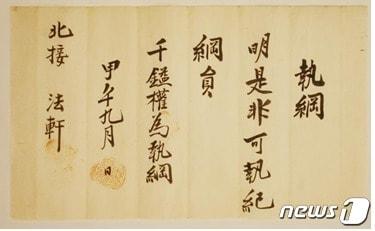 執綱
明是非可執紀
綱員
千鎰權為執綱
甲午九月 日
北接 法軒
news1